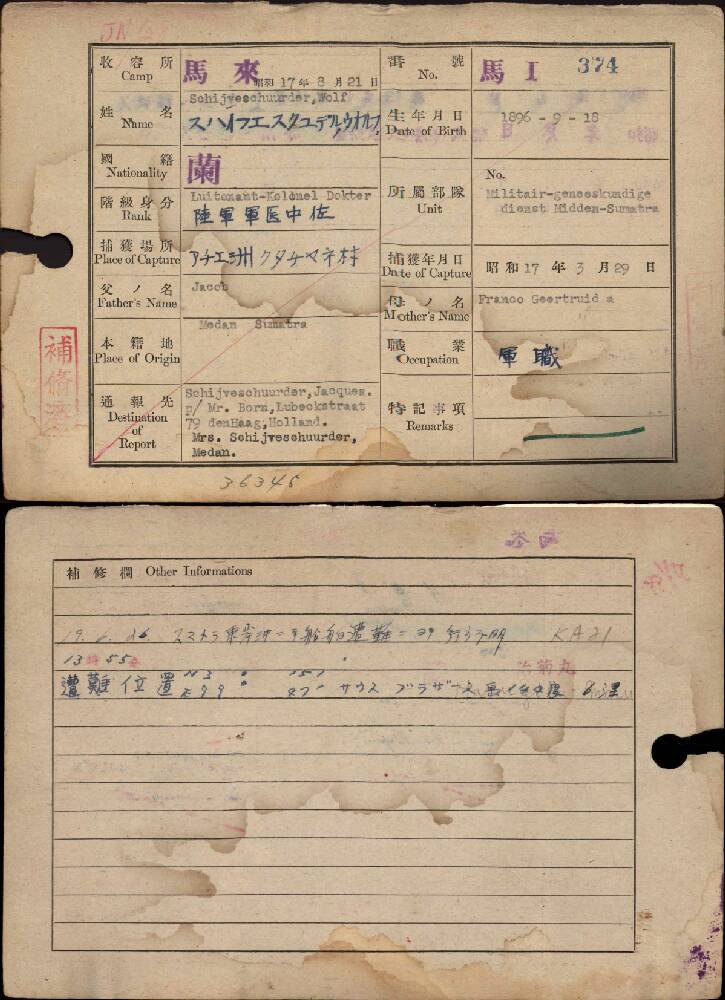 收容所 Camp 馬來 昭和17年8月21日
番號 No. 馬I 374
姓名 Name Schijveschuurder,Wolf
スハイフエスクユデル,ウオルフ
生年月日 Date of Birth 1896-9-18
國籍 Nationality 蘭
階級身分 Rank Luitenant-Kolonel Dokter
陸軍軍医中佐
所屬部隊 Unit No.
Militair-geneeskundige
dienst Midden-Sumatra
捕獲場所 Place of Capture アチエ洲クタチヤネ村
捕獲年月日 Date of Capture 昭和17年3月29日
父ノ名 Father's Name Jacob
母ノ名 Mother's Name Franco Geertruida
本籍地 Place of Origin Medan Sumatra
職業 Occupation 軍職
通報先 Destination of Report Schijveschuurder,Jacques.
p/ Mr. Born,Lubeckstraat
79 denHaag,Holland.
Mrs. Schijveschuurder,
Medan.
特記事項 Remarks
補修済
36345
補修欄 Other Informations
スマトラ東岸沖
船舶遭難
13時55分
遭難位置
サウス ブラザース